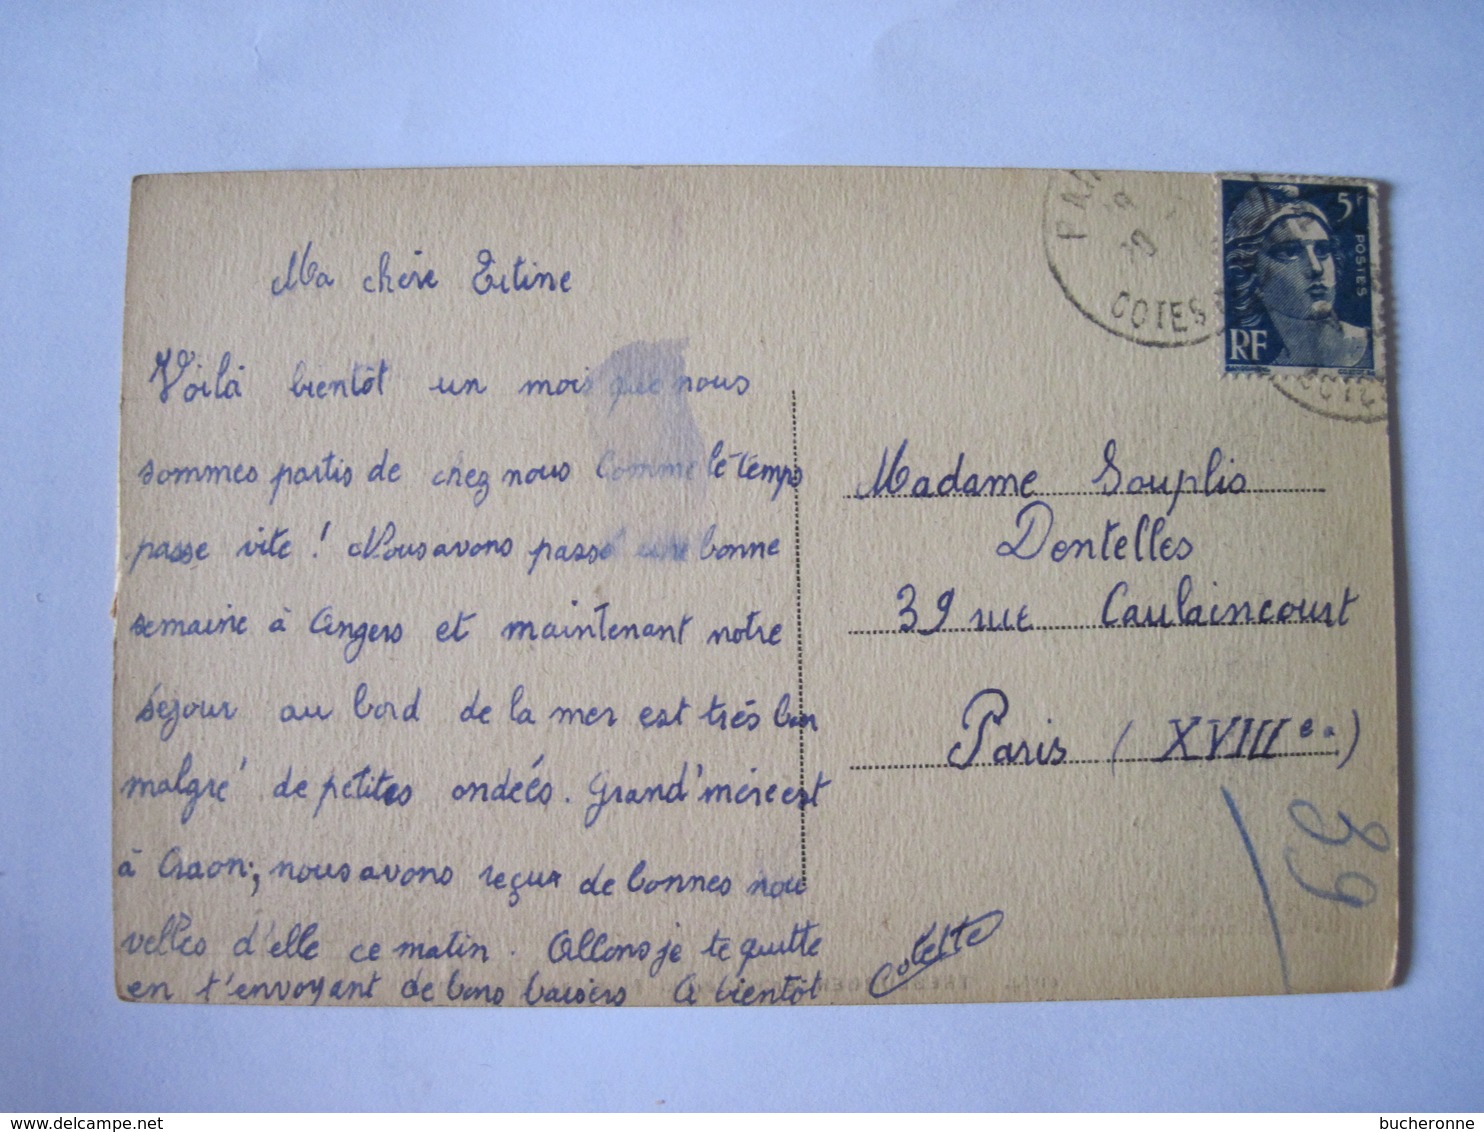 Ma chère Titine
Voilà bientôt un mois que nous
sommes partis de chez nous Comme le temps
passe vite ! Nous avons passé une bonne
semaine à Angers et maintenant notre
séjour au bord de la mer est très bon
malgré de petites ondées. Grand'mère est
à Craon; nous avons reçus de bonnes nou
velles d'elle ce matin. Allons je te quitte
en t'envoyant de bons baisers A bientôt
Colette
5F
POSTES
RF
COTES
Madame Souplis
Dentelles
39 rue Caulaincourt
Paris (XVIIIe)
39
bucheronne